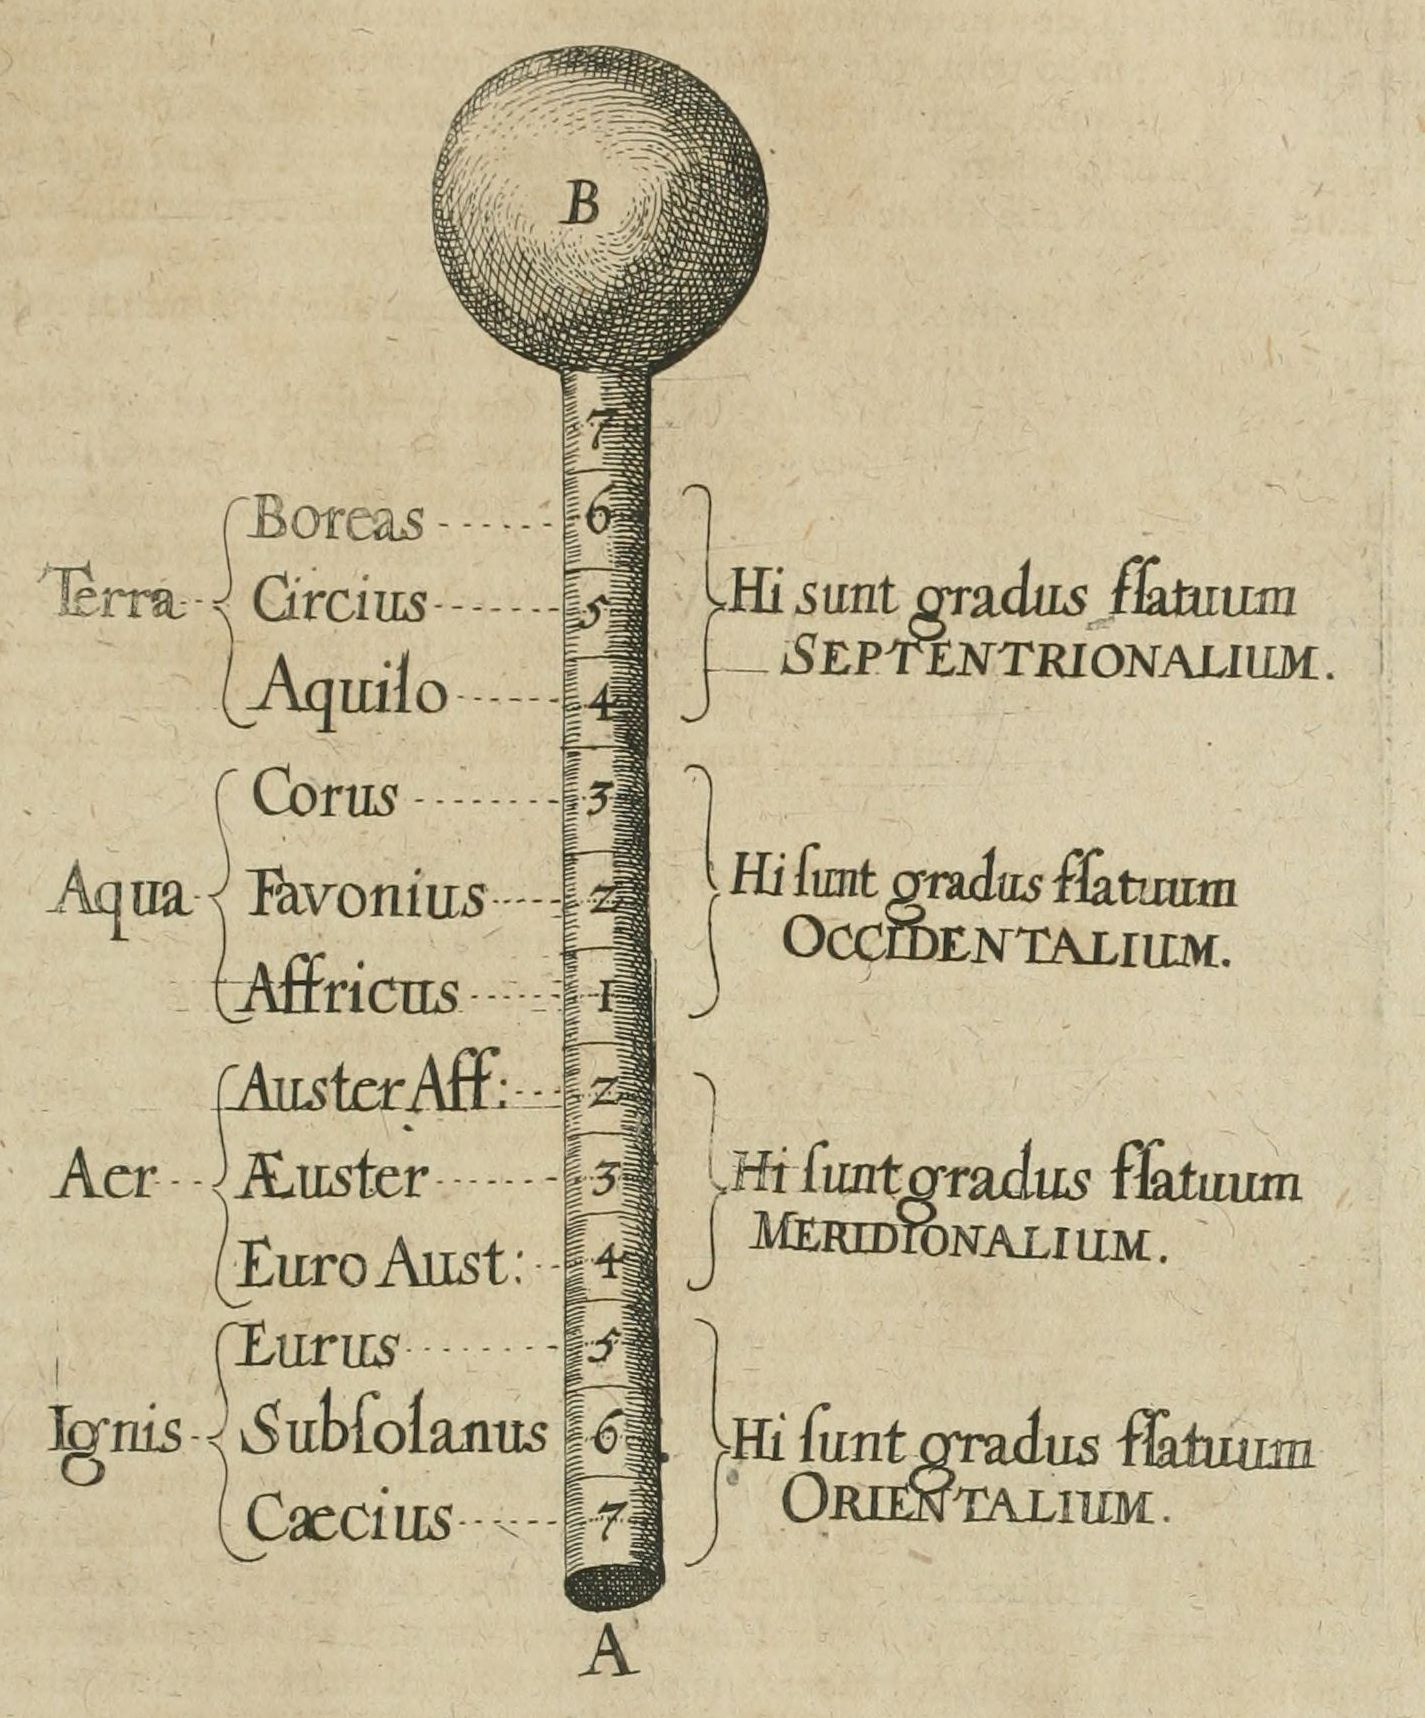 B
7
Boreas 6
Terra Circius 5 Hi sunt gradus flatuum
SEPTENTRIONALIUM.
Aquilo 4
Corus 3
Aqua Favonius 2 Hi ſunt gradus flatuum
OCCIDENTALIUM.
Affricus 1
Auster Aff: 2
Aer Æuster 3 Hi ſunt gradus flatuum
MERIDIONALIUM.
Euro Aust: 4
Eurus 5
Ignis Subſolanus 6 Hi ſunt gradus flatuum
ORIENTALIUM.
Cæcius 7
A